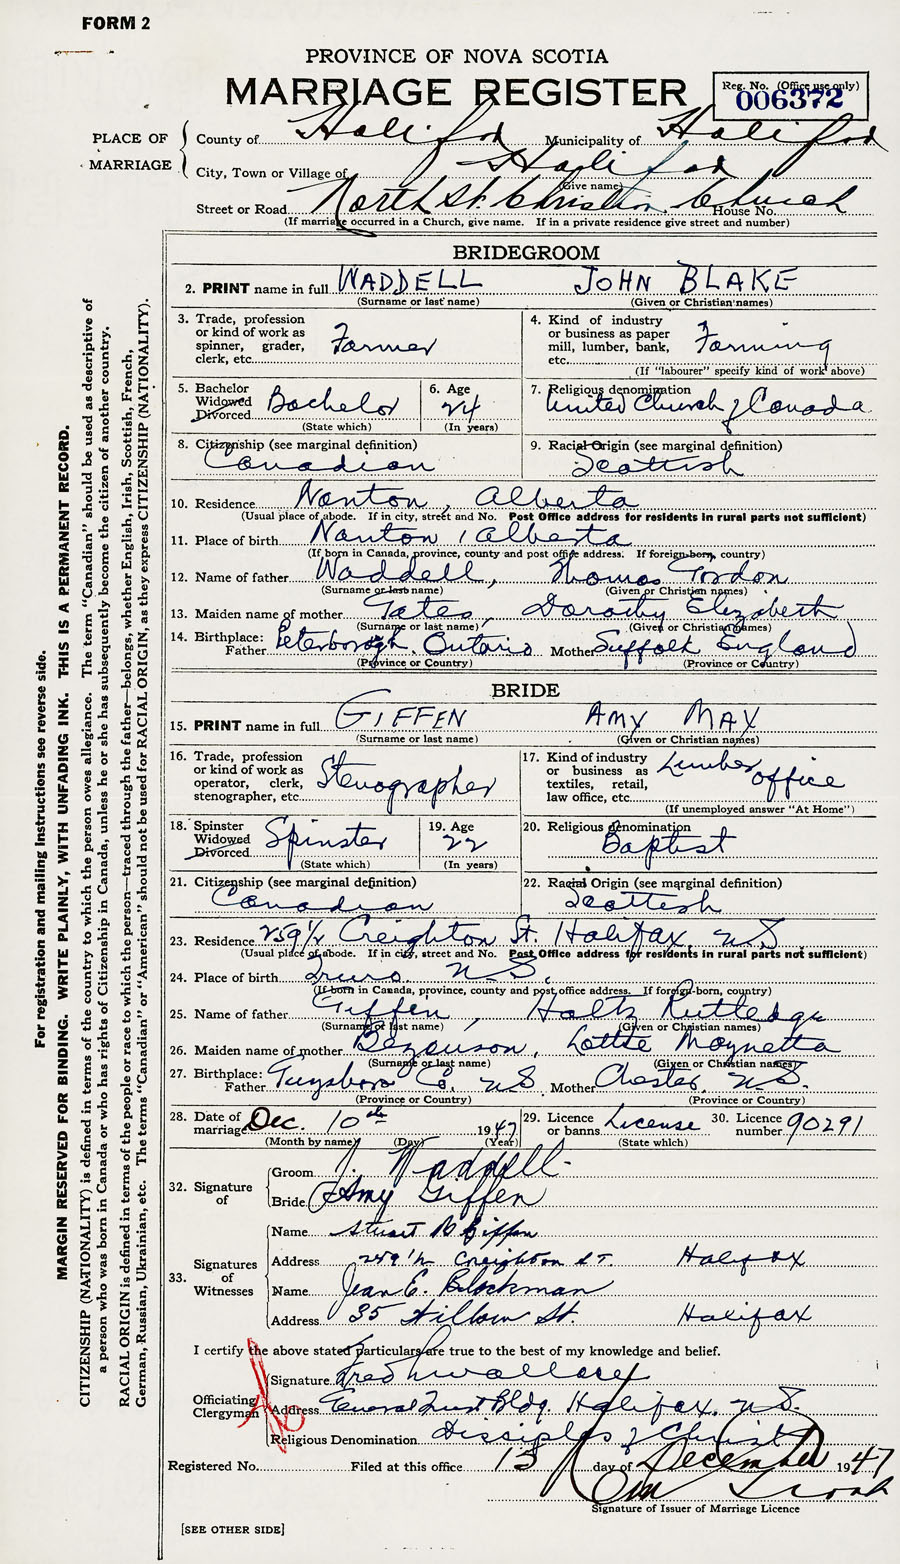 FORM 2
PROVINCE OF NOVA SCOTIA
MARRIAGE REGISTER
Reg. No. (Office use only)
006372
PLACE OF MARRIAGE
County of Halifax Municipality of Halifax
City, Town or Village of Halifax
(Give name)
Street or Road North St. Christian Church House No.
(If marriage occurred in a Church, give name. If in a private residence give street and number)
BRIDEGROOM
2. PRINT name in full WADDELL JOHN BLAKE
(Surname or last name) (Given or Christian names)
3. Trade, profession or kind of work as spinner, grader, clerk, etc. Farmer
4. Kind of industry or business as paper mill, lumber, bank, etc. Farming
(If "labourer" specify kind of work above)
5. Bachelor Widowed Divorced Bachelor
(State which)
6. Age 24
(In years)
7. Religious denomination
United Church of Canada
8. Citizenship (see marginal definition)
Canadian
9. Racial Origin (see marginal definition)
Scottish
10. Residence Nanton, Alberta
(Usual place of abode. If in city, street and No. Post Office address for residents in rural parts not sufficient)
11. Place of birth Nanton, Alberta
(If born in Canada, province, county and post office address. If foreign-born, country)
12. Name of father Waddell, Thomas Gordon
(Surname or last name) (Given or Christian names)
13. Maiden name of mother Yates, Dorothy Elizabeth
(Surname or last name) (Given or Christian names)
14. Birthplace: Father Peterborough, Ontario Mother Suffolk England
(Province or Country) (Province or Country)
BRIDE
15. PRINT name in full GIFFEN AMY MAY
(Surname or last name) (Given or Christian names)
16. Trade, profession or kind of work as operator, clerk, stenographer, etc. Stenographer
17. Kind of industry or business as textiles, retail, law office, etc. Lumber office
(If unemployed answer "At Home")
18. Spinster Widowed Divorced Spinster
(State which)
19. Age 22
(In years)
20. Religious denomination
Baptist
21. Citizenship (see marginal definition)
Canadian
22. Racial Origin (see marginal definition)
Scottish
23. Residence 259½ Creighton St. Halifax, N.S.
(Usual place of abode. If in city, street and No. Post Office address for residents in rural parts not sufficient)
24. Place of birth Truro N.S.
(If born in Canada, province, county and post office address. If foreign-born, country)
25. Name of father Giffen, Rutledge
(Surname or last name) (Given or Christian names)
26. Maiden name of mother Bezanson, Lottie
(Surname or last name) (Given or Christian names)
27. Birthplace: Father Guysboro Co. N.S. Mother Chester, N.S.
(Province or Country) (Province or Country)
28. Date of marriage Dec. 10th 1947
(Month by name) (Day) (Year)
29. Licence or banns License
(State which)
30. Licence number 90291
32. Signature of
Groom J. Waddell
Bride Amy Giffen
33. Signatures of Witnesses
Name Stuart Giffen
Address 259½ Creighton St. Halifax
Name Jean E. Blackman
Address 35 Willow St. Halifax
I certify the above stated particulars are true to the best of my knowledge and belief.
Officiating Clergyman
Signature Fred Wallace
Address General Trust Bldg. Halifax, N.S.
Religious Denomination Disciples of Christ
Registered No. Filed at this office 13 day of December 1947
Signature of Issuer of Marriage Licence
[SEE OTHER SIDE]
For registration and mailing instructions see reverse side.
MARGIN RESERVED FOR BINDING. WRITE PLAINLY, WITH UNFADING INK. THIS IS A PERMANENT RECORD.
CITIZENSHIP (NATIONALITY) is defined in terms of the country to which the person owes allegiance. The term "Canadian" should be used as descriptive of
a person who was born in Canada or who has rights of Citizenship in Canada, unless he or she has subsequently become the citizen of another country.
RACIAL ORIGIN is defined in terms of the people or race to which the person—traced through the father—belongs, whether English, Irish, Scottish, French,
German, Russian, Ukrainian, etc. The terms "Canadian" or "American" should not be used for RACIAL ORIGIN, as they express CITIZENSHIP (NATIONALITY).